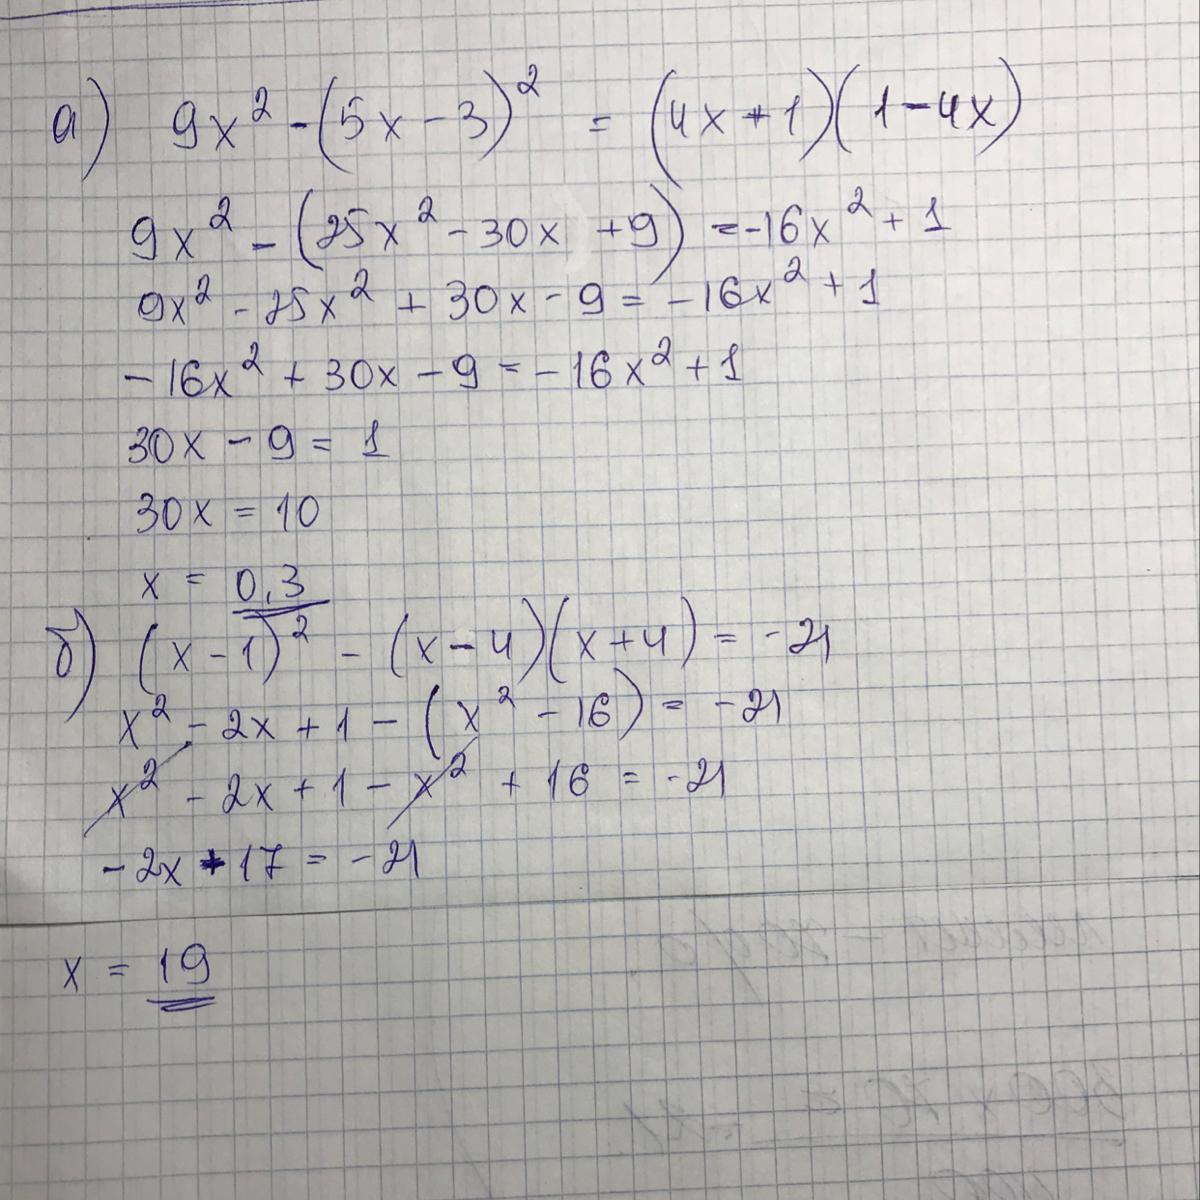 а) 9x² - (5x - 3)² = (4x + 1)(1 - 4x)
9x² - (25x² - 30x + 9) = -16x² + 1
9x² - 25x² + 30x - 9 = -16x² + 1
-16x² + 30x - 9 = -16x² + 1
30x - 9 = 1
30x = 10
x = 0,3
б) (x - 1)² - (x - 4)(x + 4) = -21
x² - 2x + 1 - (x² - 16) = -21
x² - 2x + 1 - x² + 16 = -21
-2x + 17 = -21
x = 19